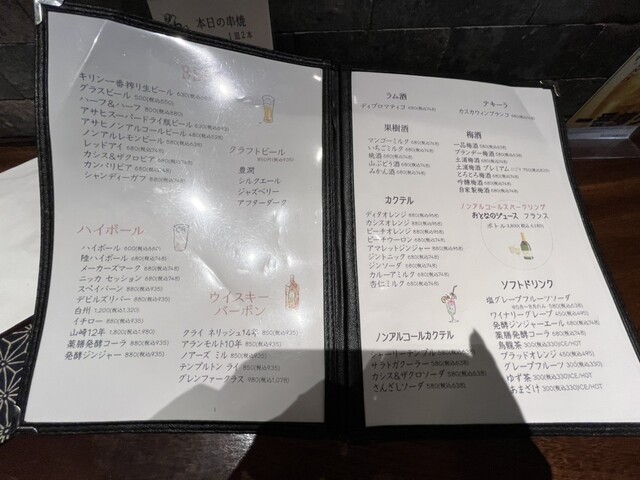 本日の串焼
1皿2本
キリン一番搾り生ビール
グラスビール 500(税込550)
ハーフ&ハーフ
アサヒスーパードライ瓶ビール
アサヒノンアルコールビール
ノンアルレモンビール
レッドアイ 680(税込748)
カシス&ザクロビア 680(税込748)
カンパリビア 680(税込748)
シャンディーガフ 680(税込748)
クラフトビール
豊潤
シルクエール
ジャズベリー
アフターダーク
ハイボール
ハイボール 600(税込660)
陸ハイボール 680(税込748)
メーカーズマーク 680(税込748)
ニッカ セッション 680(税込748)
スペイバーン 850(税込935)
デビルズリバー 850(税込935)
白州 1,200(税込1,320)
イチロー 850(税込935)
山崎12年 1,800(税込1,980)
薬膳発酵コーラ 850(税込935)
発酵ジンジャー 850(税込935)
ウイスキー
バーボン
クライ ネリッシュ14年 850(税込935)
アランモルト10年 850(税込935)
ノアーズ ミル 850(税込935)
テンプルトン ライ 850(税込935)
グレンファークラス 980(税込1,078)
ラム酒
ディプロマティコ 680(税込748)
テキーラ
カスカウィンブランコ 680(税込748)
果樹酒
マンゴーミルク 680(税込748)
いちごミルク 680(税込748)
桃酒 680(税込748)
山ぶどう酒 680(税込748)
みかん酒 680(税込748)
梅酒
一品梅酒 680(税込748)
ブランデー梅酒 680(税込748)
土浦梅酒 680(税込748)
土浦梅酒 プレミアム
とろとろ梅酒 680(税込748)
吟醸梅酒 680(税込748)
自家製梅酒 680(税込748)
カクテル
ディタオレンジ
カシスオレンジ
ピーチオレンジ
ピーチウーロン
アマレットジンジャー
ジントニック 680(税込748)
ジンソーダ 680(税込748)
カルーアミルク 680(税込748)
杏仁ミルク 680(税込748)
ノンアルコールスパークリング
おとなのジュース フランス
ボトル
ノンアルコールカクテル
シャーリーテンプル 580(税込638)
サラトガクーラー 580(税込638)
カシス&ザクロソーダ 580(税込638)
さんざしソーダ 580(税込638)
ソフトドリンク
塩グレープフルーツソーダ
ワイナリーグレープ 450(税込495)
発酵ジンジャーエール 580(税込638)
薬膳発酵コーラ 580(税込638)
烏龍茶 300(税込330)ICE/HOT
ブラッドオレンジ 450(税込495)
グレープフルーツ 300(税込330)
ゆず茶 300(税込330)ICE/HOT
あまざけ 300(税込330)ICE/HOT